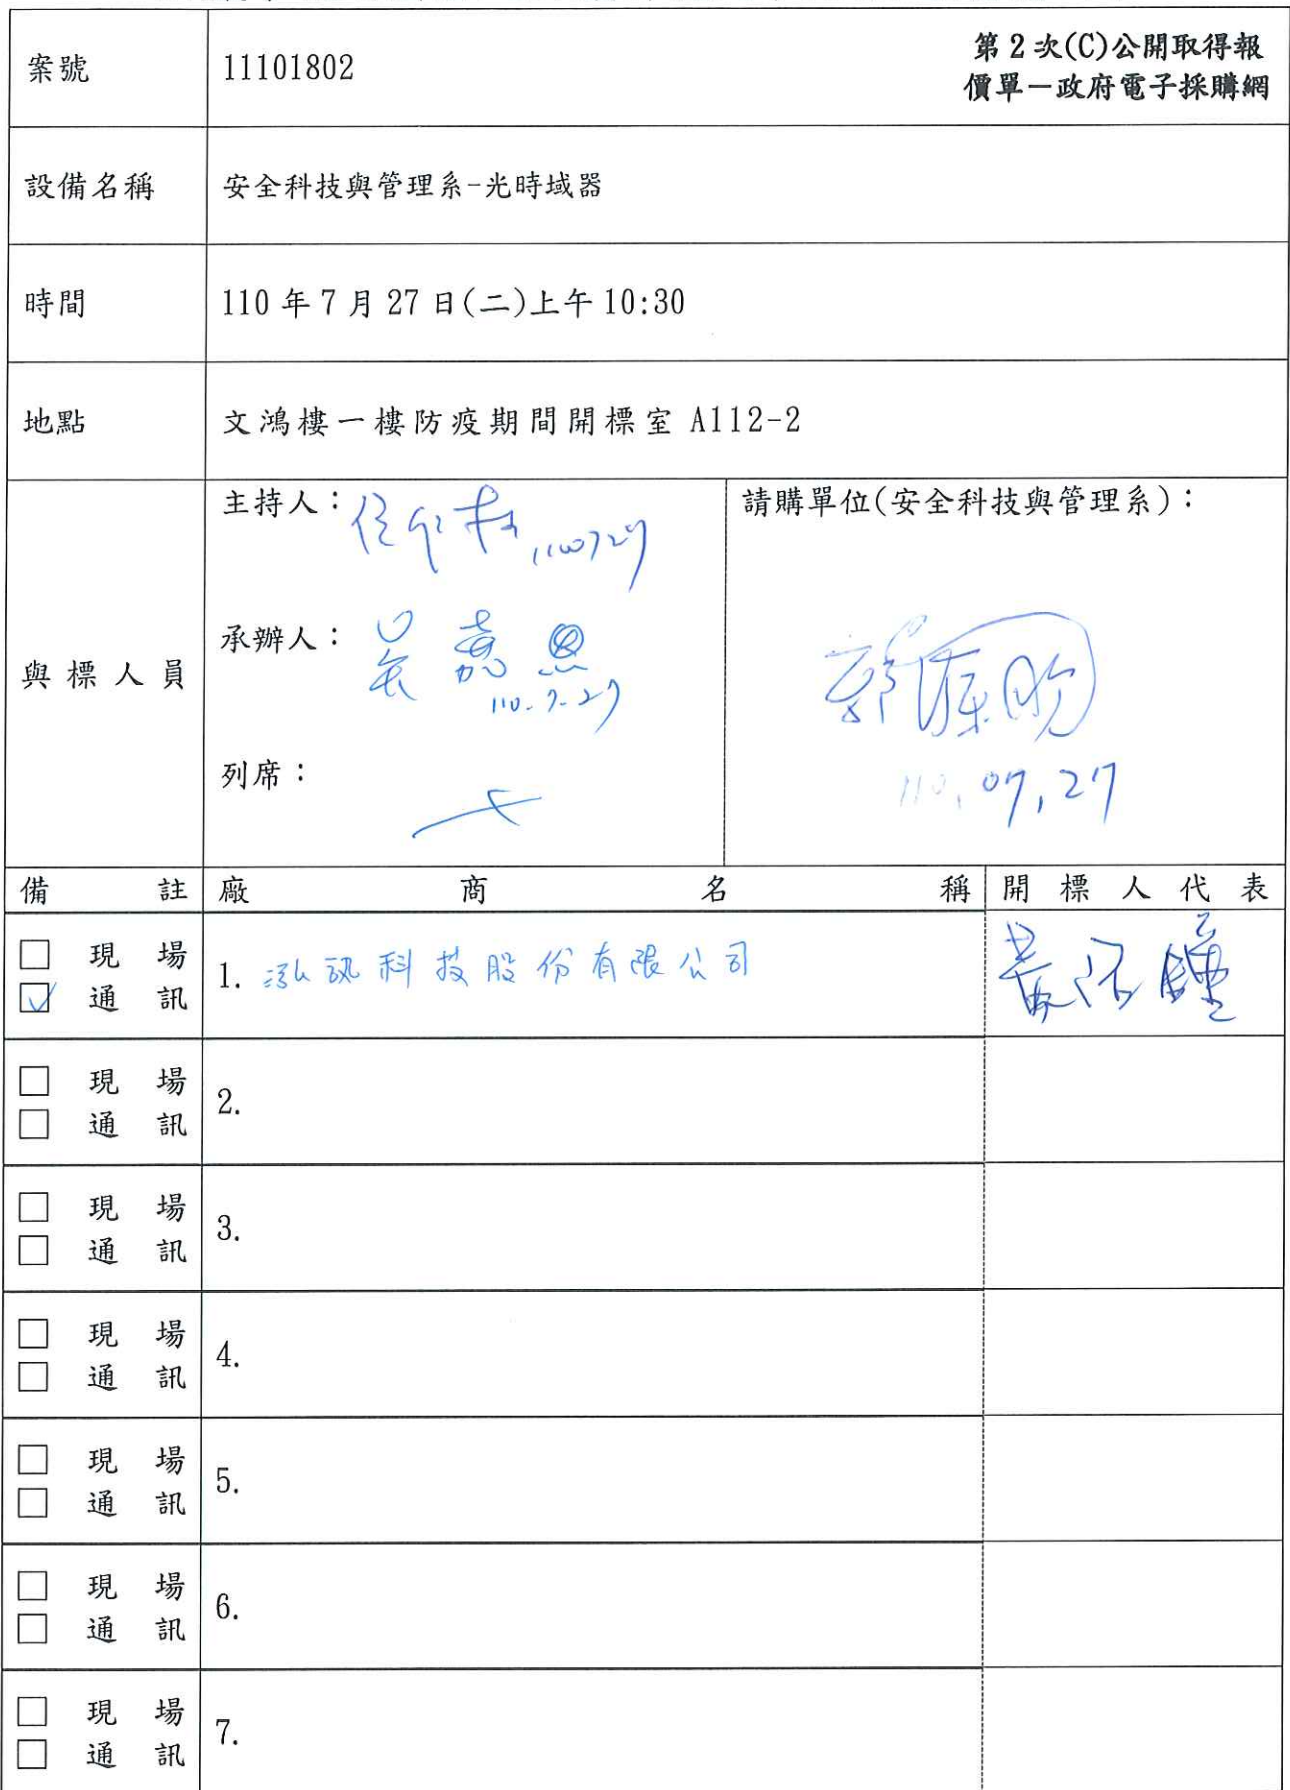 案號
11101802
第2次(C)公開取得報
價單－政府電子採購網
設備名稱
安全科技與管理系-光時域器
時間
110年7月27日(二)上午10:30
地點
文鴻樓一樓防疫期間開標室 A112-2
與標人員
主持人：
1100727
承辦人：吳嘉恩
110.7.27
列席：
請購單位(安全科技與管理系)：
110.07.27
備註 廠商名稱 開標人代表
□ 現場
☑ 通訊
1. 泓訊科技股份有限公司
□ 現場
□ 通訊
2.
□ 現場
□ 通訊
3.
□ 現場
□ 通訊
4.
□ 現場
□ 通訊
5.
□ 現場
□ 通訊
6.
□ 現場
□ 通訊
7.